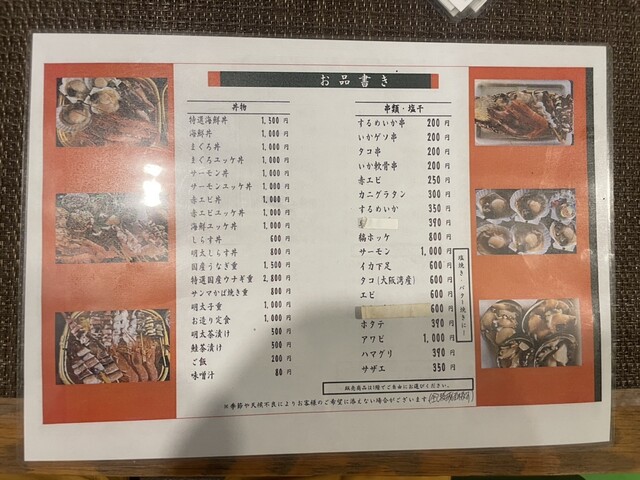 お品書き
丼物
特選海鮮丼 1,500 円
海鮮丼 1,000 円
まぐろ丼 1,000 円
まぐろユッケ丼 1,000 円
サーモン丼 1,000 円
サーモンユッケ丼 1,000 円
赤エビ丼 1,000 円
赤エビユッケ丼 1,000 円
海鮮ユッケ丼 1,000 円
しらす丼 600 円
明太しらす丼 800 円
国産うなぎ重 1,500 円
特選国産ウナギ重 2,800 円
サンマかば焼き重 800 円
明太子重 1,000 円
お造り定食 1,000 円
明太茶漬け 500 円
鮭茶漬け 500 円
ご飯 200 円
味噌汁 80 円
串類・塩干
するめいか串 200 円
いかゲソ串 200 円
タコ串 200 円
いか軟骨串 200 円
赤エビ 250 円
カニグラタン 300 円
するめいか 350 円
390 円
縞ホッケ 800 円
サーモン 1,000 円
イカ下足 600 円
タコ(大阪湾産) 600 円
エビ 600 円
600 円
ホタテ 390 円
アワビ 1,000 円
ハマグリ 390 円
サザエ 350 円
塩焼き・バター焼きに!
販売商品は1階でご自由にお選びください。
※季節や天候不良によりお客様のご希望に添えない場合がございます